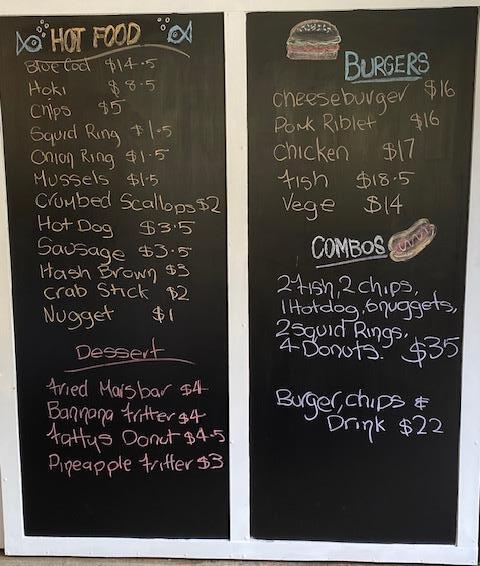 HOT FOOD
Blue Cod $14.5
Hoki $8.5
Chips $5
Squid Ring $1.5
Onion Ring $1.5
Mussels $1.5
Crumbed Scallops $2
Hot Dog $3.5
Sausage $3.5
Hash Brown $3
Crab Stick $2
Nugget $1
Dessert
fried Marsbar $4
Bannana fritter $4
fattys Donut $4.5
Pineapple fritter $3
BURGERS
Cheeseburger $16
Pork Riblet $16
Chicken $17
fish $18.5
Vege $14
COMBOS
2 fish, 2 chips,
1 Hotdog, 6 nuggets,
2 Squid Rings,
4 Donuts. $35
Burger, chips &
Drink $22